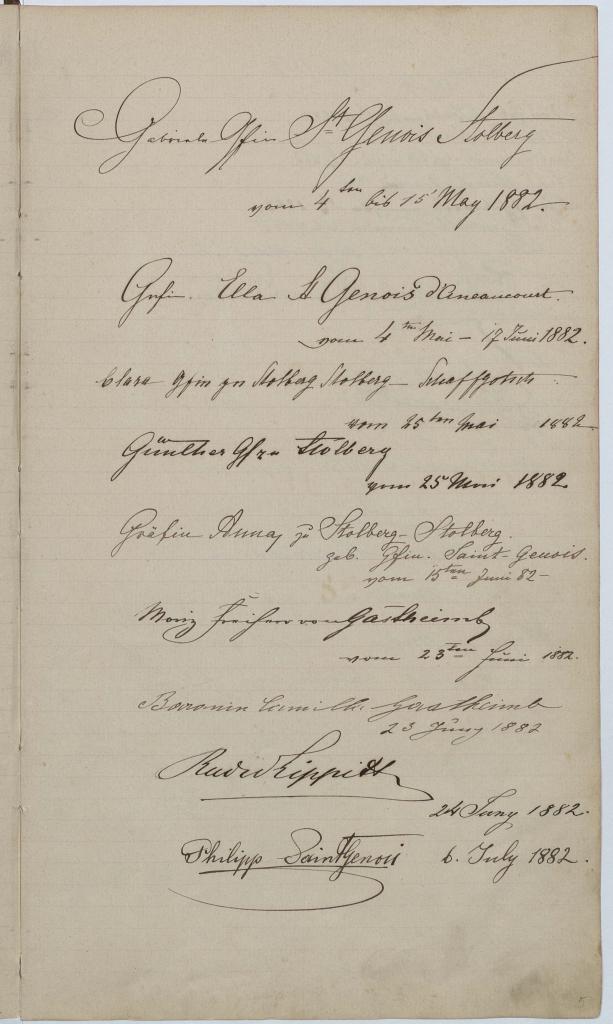 Gabriele Gfin St Genois Stolberg
vom 4ten bis 15 May 1882.
Gfin. Ella St Genois d'Aneaucourt.
vom 4ten Mai – 17 Juni 1882.
Clara Gfin zu Stolberg Stolberg – Schaffgotsch
vom 25ten Mai 1882
Günther Gf zu Stolberg
vom 25 Mai 1882.
Gräfin Anna, zu Stolberg-Stolberg.
geb. Gfin. Saint-Genois.
vom 15ten Juni 82 –
Moriz Freiherr von Gastheimb
vom 23ten Juni 1882.
Baronin Camilla Gastheimb
23 Juny 1882
Lippitt
24 Juny 1882.
Philipp Saint Genois 6. July 1882.